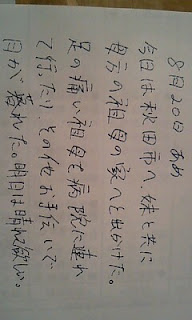 8月20日 あめ
今日は秋田市へ、妹と共に
母方の祖母の家へと出かけた。
足の痛い祖母を病院に連れ
て行ったり、その他お手伝いで
日が暮れた。明日は晴れて欲しい。